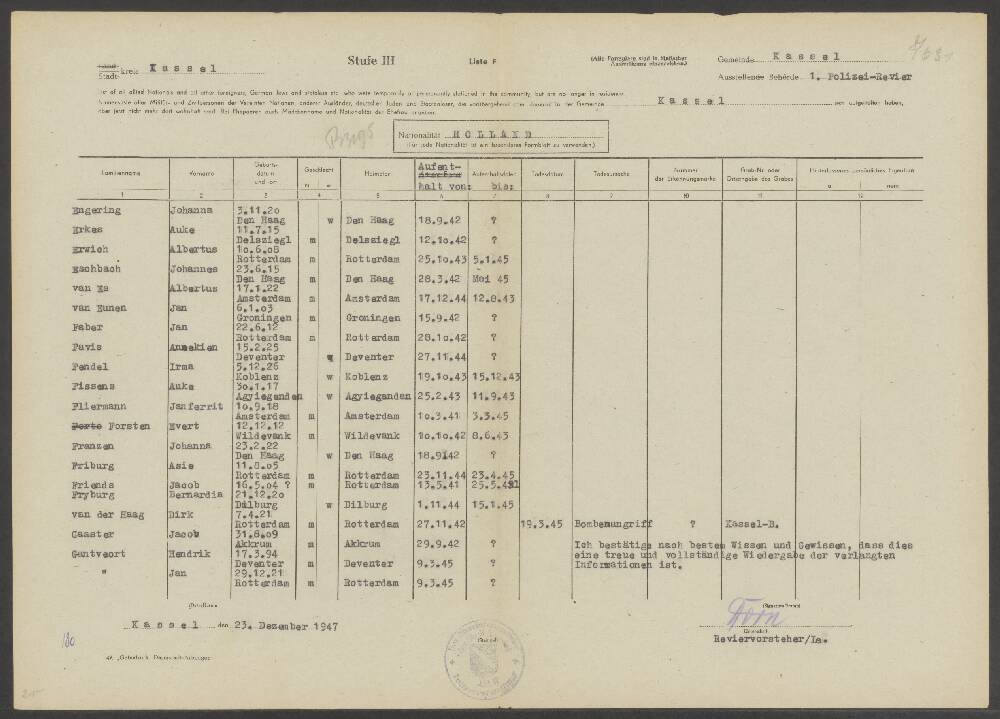 Stadt- kreis Kassel
Stufe III
Liste F
Gemeinde Kassel
Ausstellende Behörde 1. Polizei-Revier
List of all allied Nationals and all other foreigners, German Jews and stateless etc. who were temporarily or permanently stationed in the community, but are no longer in residence.
Kassel
sich aufgehalten haben,
Nationalität HOLLAND
(Für jede Nationalität ist ein besonderes Formblatt zu verwenden.)
Familienname Vorname Geburts-datum und -ort Geschlecht m w Heimatort Aufent-halt von: bis: Todesdatum Todesursache Nummer der Erkennungsmarke Grab-Nr oder Ortsangabe des Grabes
1 2 3 4 5 6 7 8 9 10 11 12
Engering Johanna 3.11.20
Den Haag w Den Haag 18.9.42 ?
Erkes Auke 11.7.15
Delsziegl m Delsziegl 12.10.42 ?
Erwich Albertus 10.6.08
Rotterdam m Rotterdam 25.10.43 5.1.45
Eschbach Johannes 23.6.15
Den Haag m Den Haag 28.3.42 Mai 45
van Es Albertus 17.1.22
Amsterdam m Amsterdam 17.12.44 12.8.43
van Eunen Jan 6.1.03
Groningen m Groningen 15.9.42 ?
Faber Jan 22.6.12
Rotterdam m Rotterdam 28.10.42 ?
Favis Annekien 15.2.25
Deventer w Deventer 27.11.44 ?
Fendel Irma 5.12.26
Koblenz w Koblenz 19.10.43 15.12.43
Fissens Auke 30.1.17
Agyieganden w Agyieganden 25.2.43 11.9.43
Fliermann Janferrit 10.9.18
Amsterdam m Amsterdam 10.3.41 3.3.45
Forsten Evert 12.12.12
Wildevank m Wildevank 10.10.42 8.6.43
Franzen Johanna 23.2.22
Den Haag w Den Haag 18.9142 ?
Friburg Asie 11.8.05
Rotterdam m Rotterdam 23.11.44 23.4.45
Friends Jacob 16.5.04 ? m Rotterdam 13.5.41
Fryburg Bernardia 21.12.20
Dilburg w Dilburg 1.11.44 15.1.45
van der Haag Dirk 7.4.21
Rotterdam m Rotterdam 27.11.42 19.3.45 Bombenangriff ? Kassel-B.
Gaaster Jacob 31.8.09
Akkrum m Akkrum 29.9.42 ?
Gantveort Hendrik 17.3.94
Deventer m Deventer 9.3.45 ?
" Jan 29.12.21
Rotterdam m Rotterdam 9.3.45 ?
Ich bestätige nach bestem Wissen und Gewissen, dass dies
eine treue und vollständige Wiedergabe der verlangten
Informationen ist.
Kassel den 23. Dezember 1947
Dorn
Reviervorsteher/La.
130